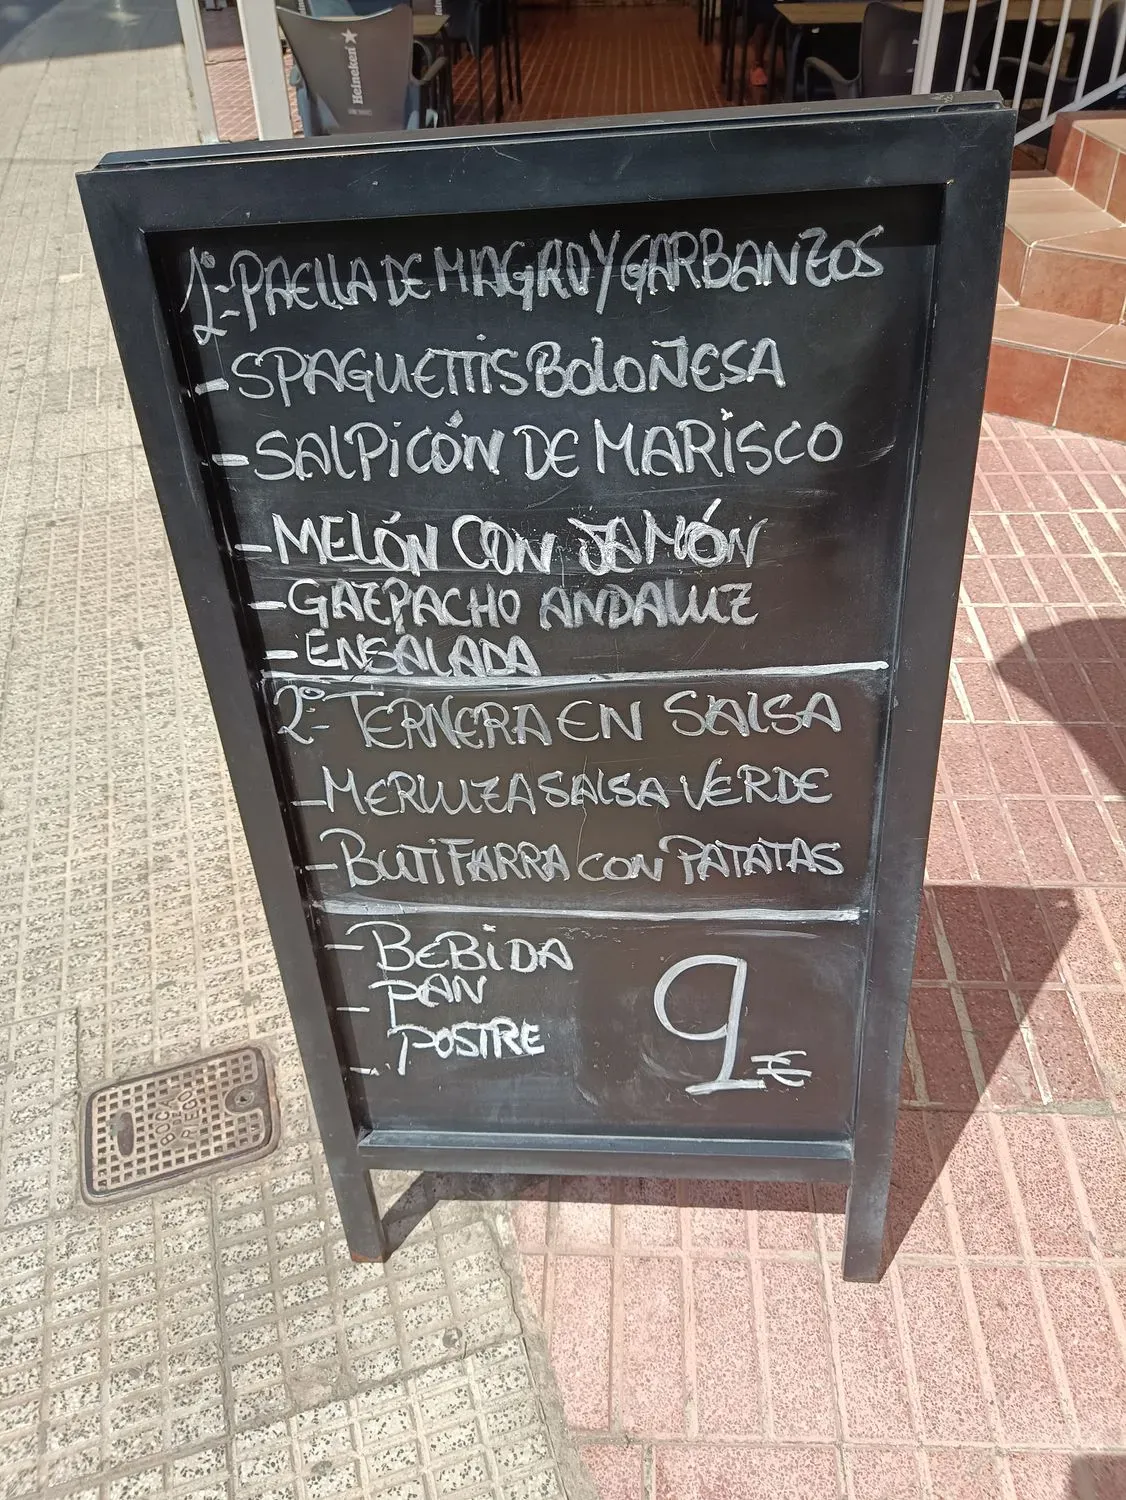 Heineken
1º- PAELLA DE MAGRO Y GARBANZOS
- SPAGUETTIS BOLOÑESA
- SALPICÓN DE MARISCO
- MELÓN CON JAMÓN
- GAZPACHO ANDALUZ
- ENSALADA
2º- TERNERA EN SALSA
- MERLUZA SALSA VERDE
- BUTIFARRA CON PATATAS
- BEBIDA
- PAN
- POSTRE
9€
BOCA
RIEGO